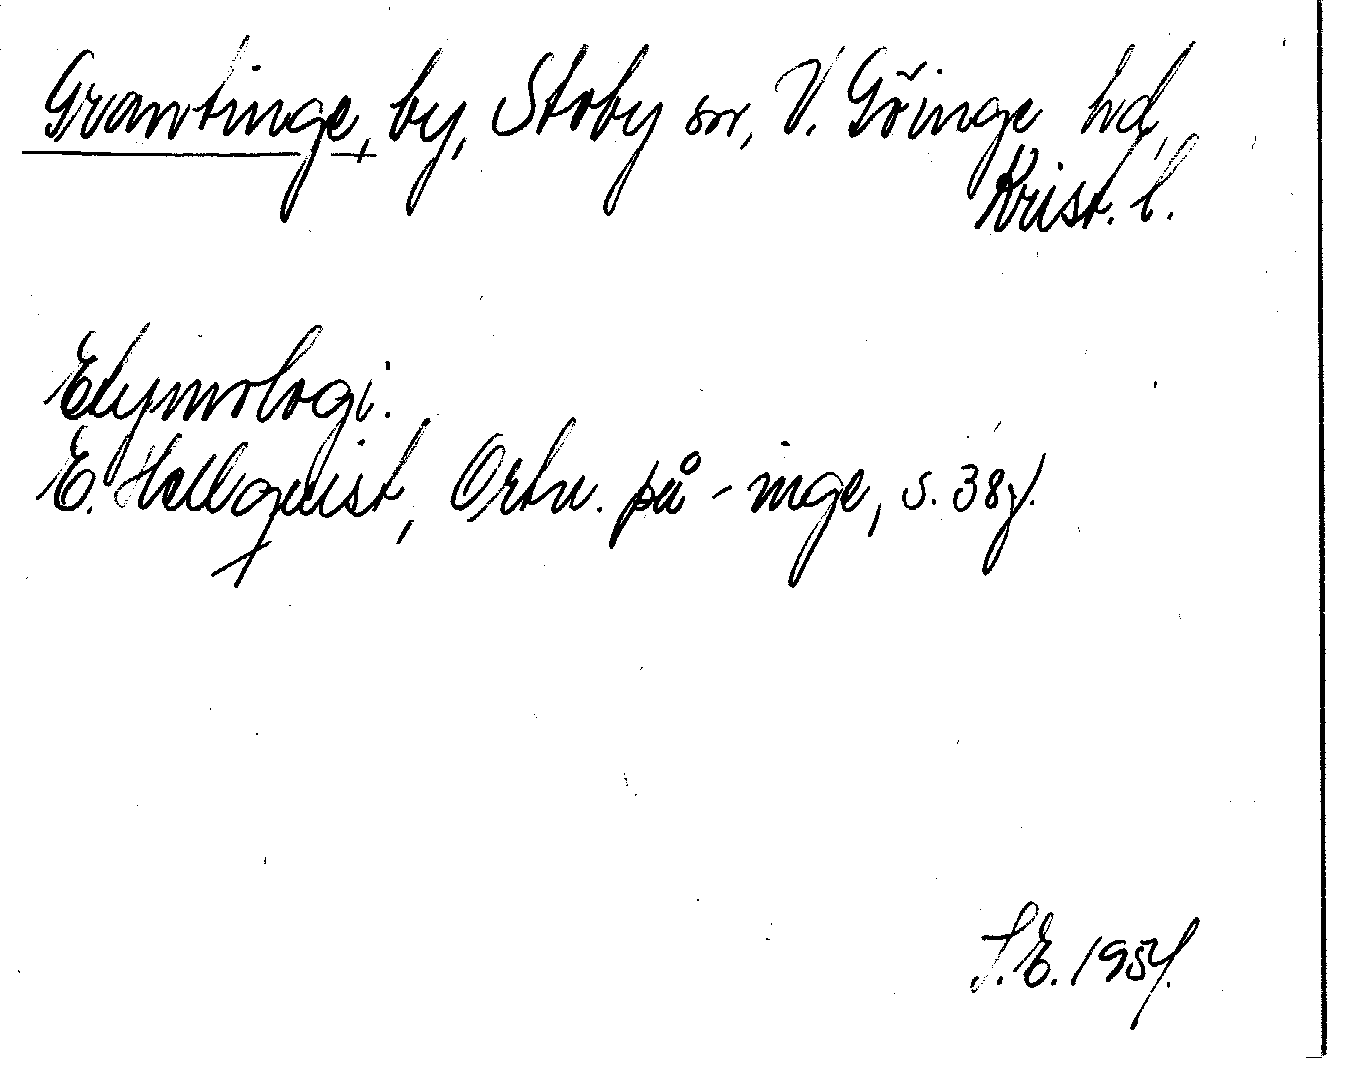 Grantinge, by, Stoby sn, V. Göinge hd,
Krist. l.
Etymologi:
E. Hellquist, Ortn. på -inge, s. 38f.
S.E. 1954.